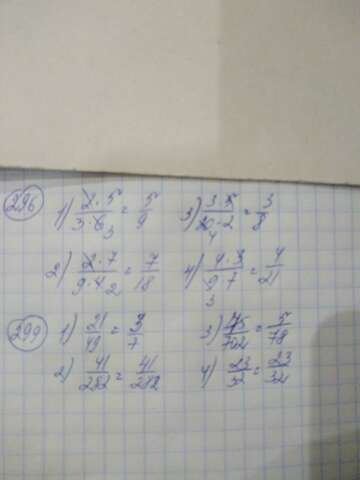 296 1) 2·5/3·6 3 = 5/9 3) 3·5/10·2 4 = 3/8
2) 2·7/9·4 2 = 7/18 4) 4·3/9·7 3 = 4/21
299 1) 21/49 = 3/7 3) = 5/78
2) 41/282 = 41/282 4) 23/32 = 23/32